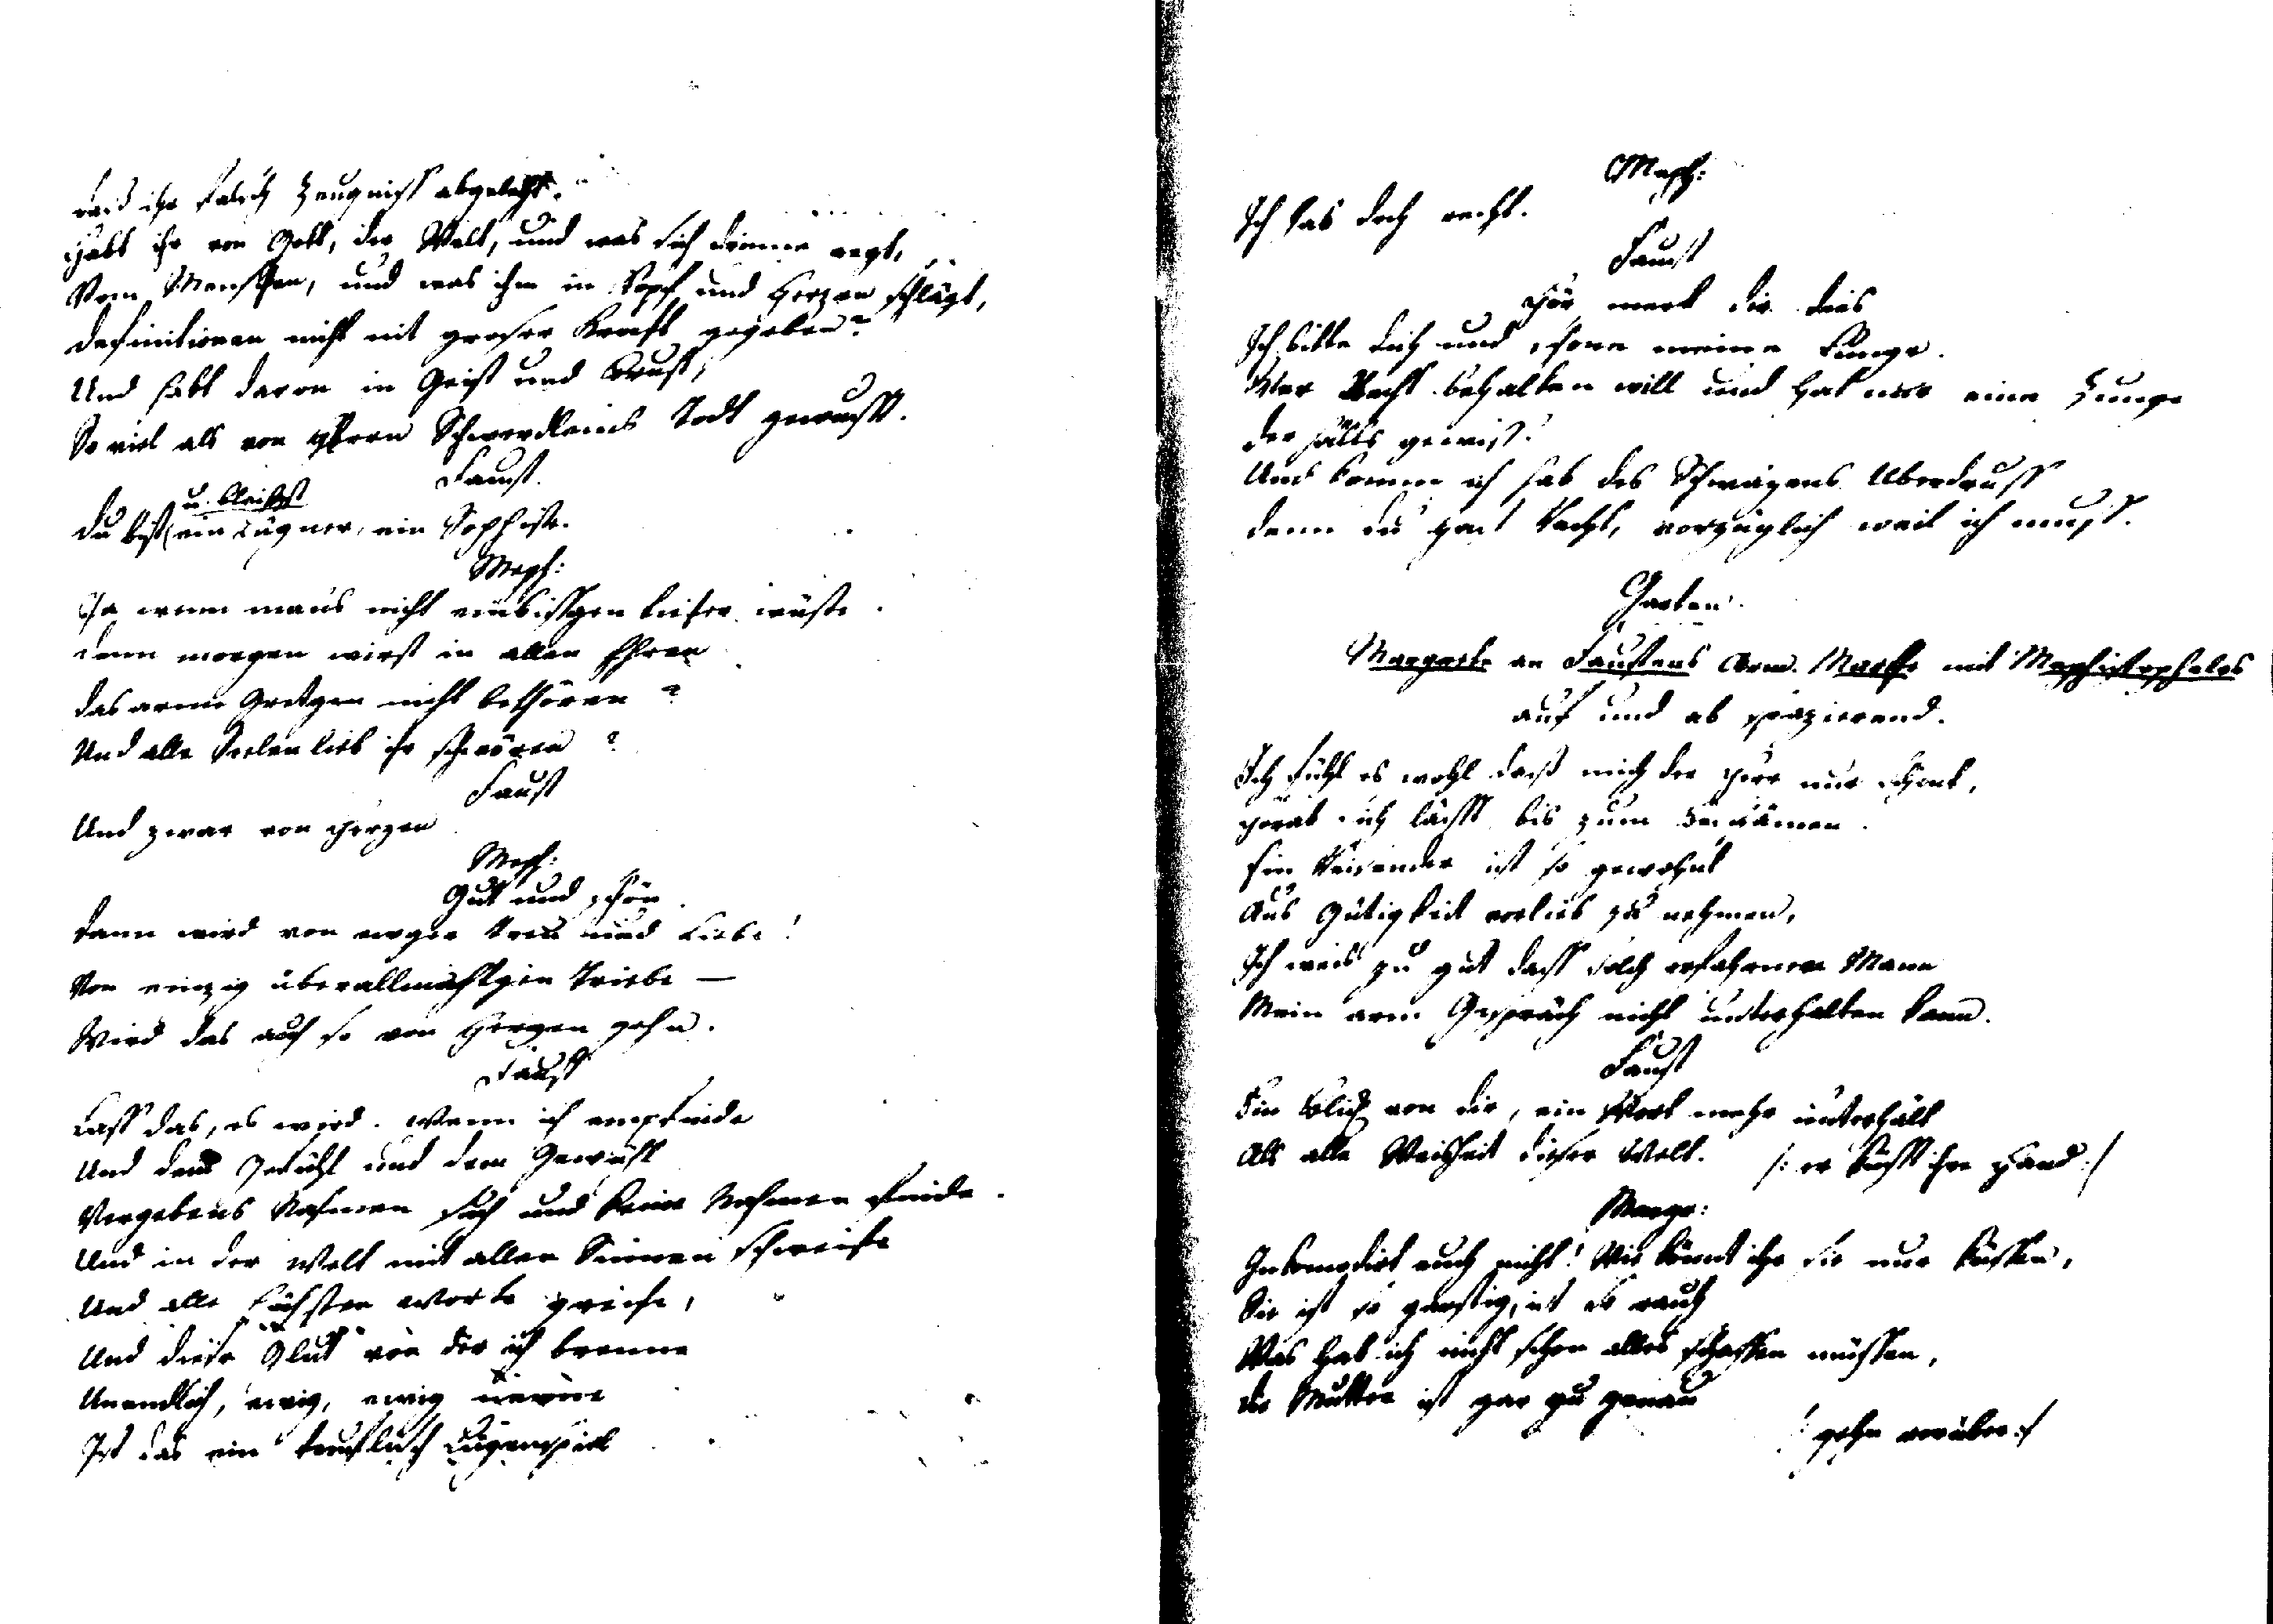 dass ihr falsch Zeugniss abgelegt.
Habt ihr von Gott, der Welt, und was sich drinne regt,
Vom Menschen, und was ihm in Kopf und Herzen schlägt,
Definitionen nicht mit groser Krafft gegeben?
Und habt davon in Geist und Brust,
So viel als von Herrn Schwerdleins Todt gewusst.
Faust.
u. bleibst
Du bist ein Lügner, ein Sophiste.
Meph:
Ja wenn mans nicht einbissgen tiefer wüste.
denn morgen wirst in allen Ehren
das arme Gretgen nicht bethören?
Und alle Seelenlieb ihr schwören?
Faust
Und zwar von Herzen
Meph:
Gut und schön
dann wird von ewger Treu und Liebe!
Von einzig überallmächtgem Triebe —
Wird das auch so von Herzen gehn.
Faust
Lass das, es wird. Wenn ich empfinde
Und dem Gefühl und dem Gewühl
Vergebens Nahmen such und keine Nahmen finde.
Und in der Welt mit allen Sinnen schweife
Und alle höchsten Worte greife,
Und diese Glut von der ich brenne
Unendlich, ewig, ewig nenne
Ist das ein teuflisch Lügenspiel
Meph:
Ich hab doch recht.
Faust
Hör merk dir dies
Ich bitte dich und schone meine Lunge.
Wer Recht behalten will und hat nur eine Zunge
der hälts gewiss.
Und komm ich hab des Schwäzens Uberdruss
denn du hast Recht, vorzüglich weil ich muss.
Garten.
Margarete an Faustens Arm. Marthe mit Mephistopheles
auf und ab spazierend.
Ich fühl es wohl dass mich der Herr nur schont,
Herab sich lässt bis zum Beschämen.
Ein Reisender ist so gewohnt
Aus Gütigkeit vorlieb zu nehmen,
Ich weis zu gut dass solch erfahrnen Mann
Mein arm Gespräch nicht unterhalten kann.
Faust
Ein Blick von dir, ein Wort mehr unterhält
Als alle Weisheit dieser Welt. /: er küsst ihre Hand :/
Margr:
Inkommodirt euch nicht! Wie könnt ihr sie nur küssen,
Sie ist so garstig, ist so rauh
Was hab ich nicht schon alles schaffen müssen,
die Mutter ist gar zu genau
/: gehn vorüber :/